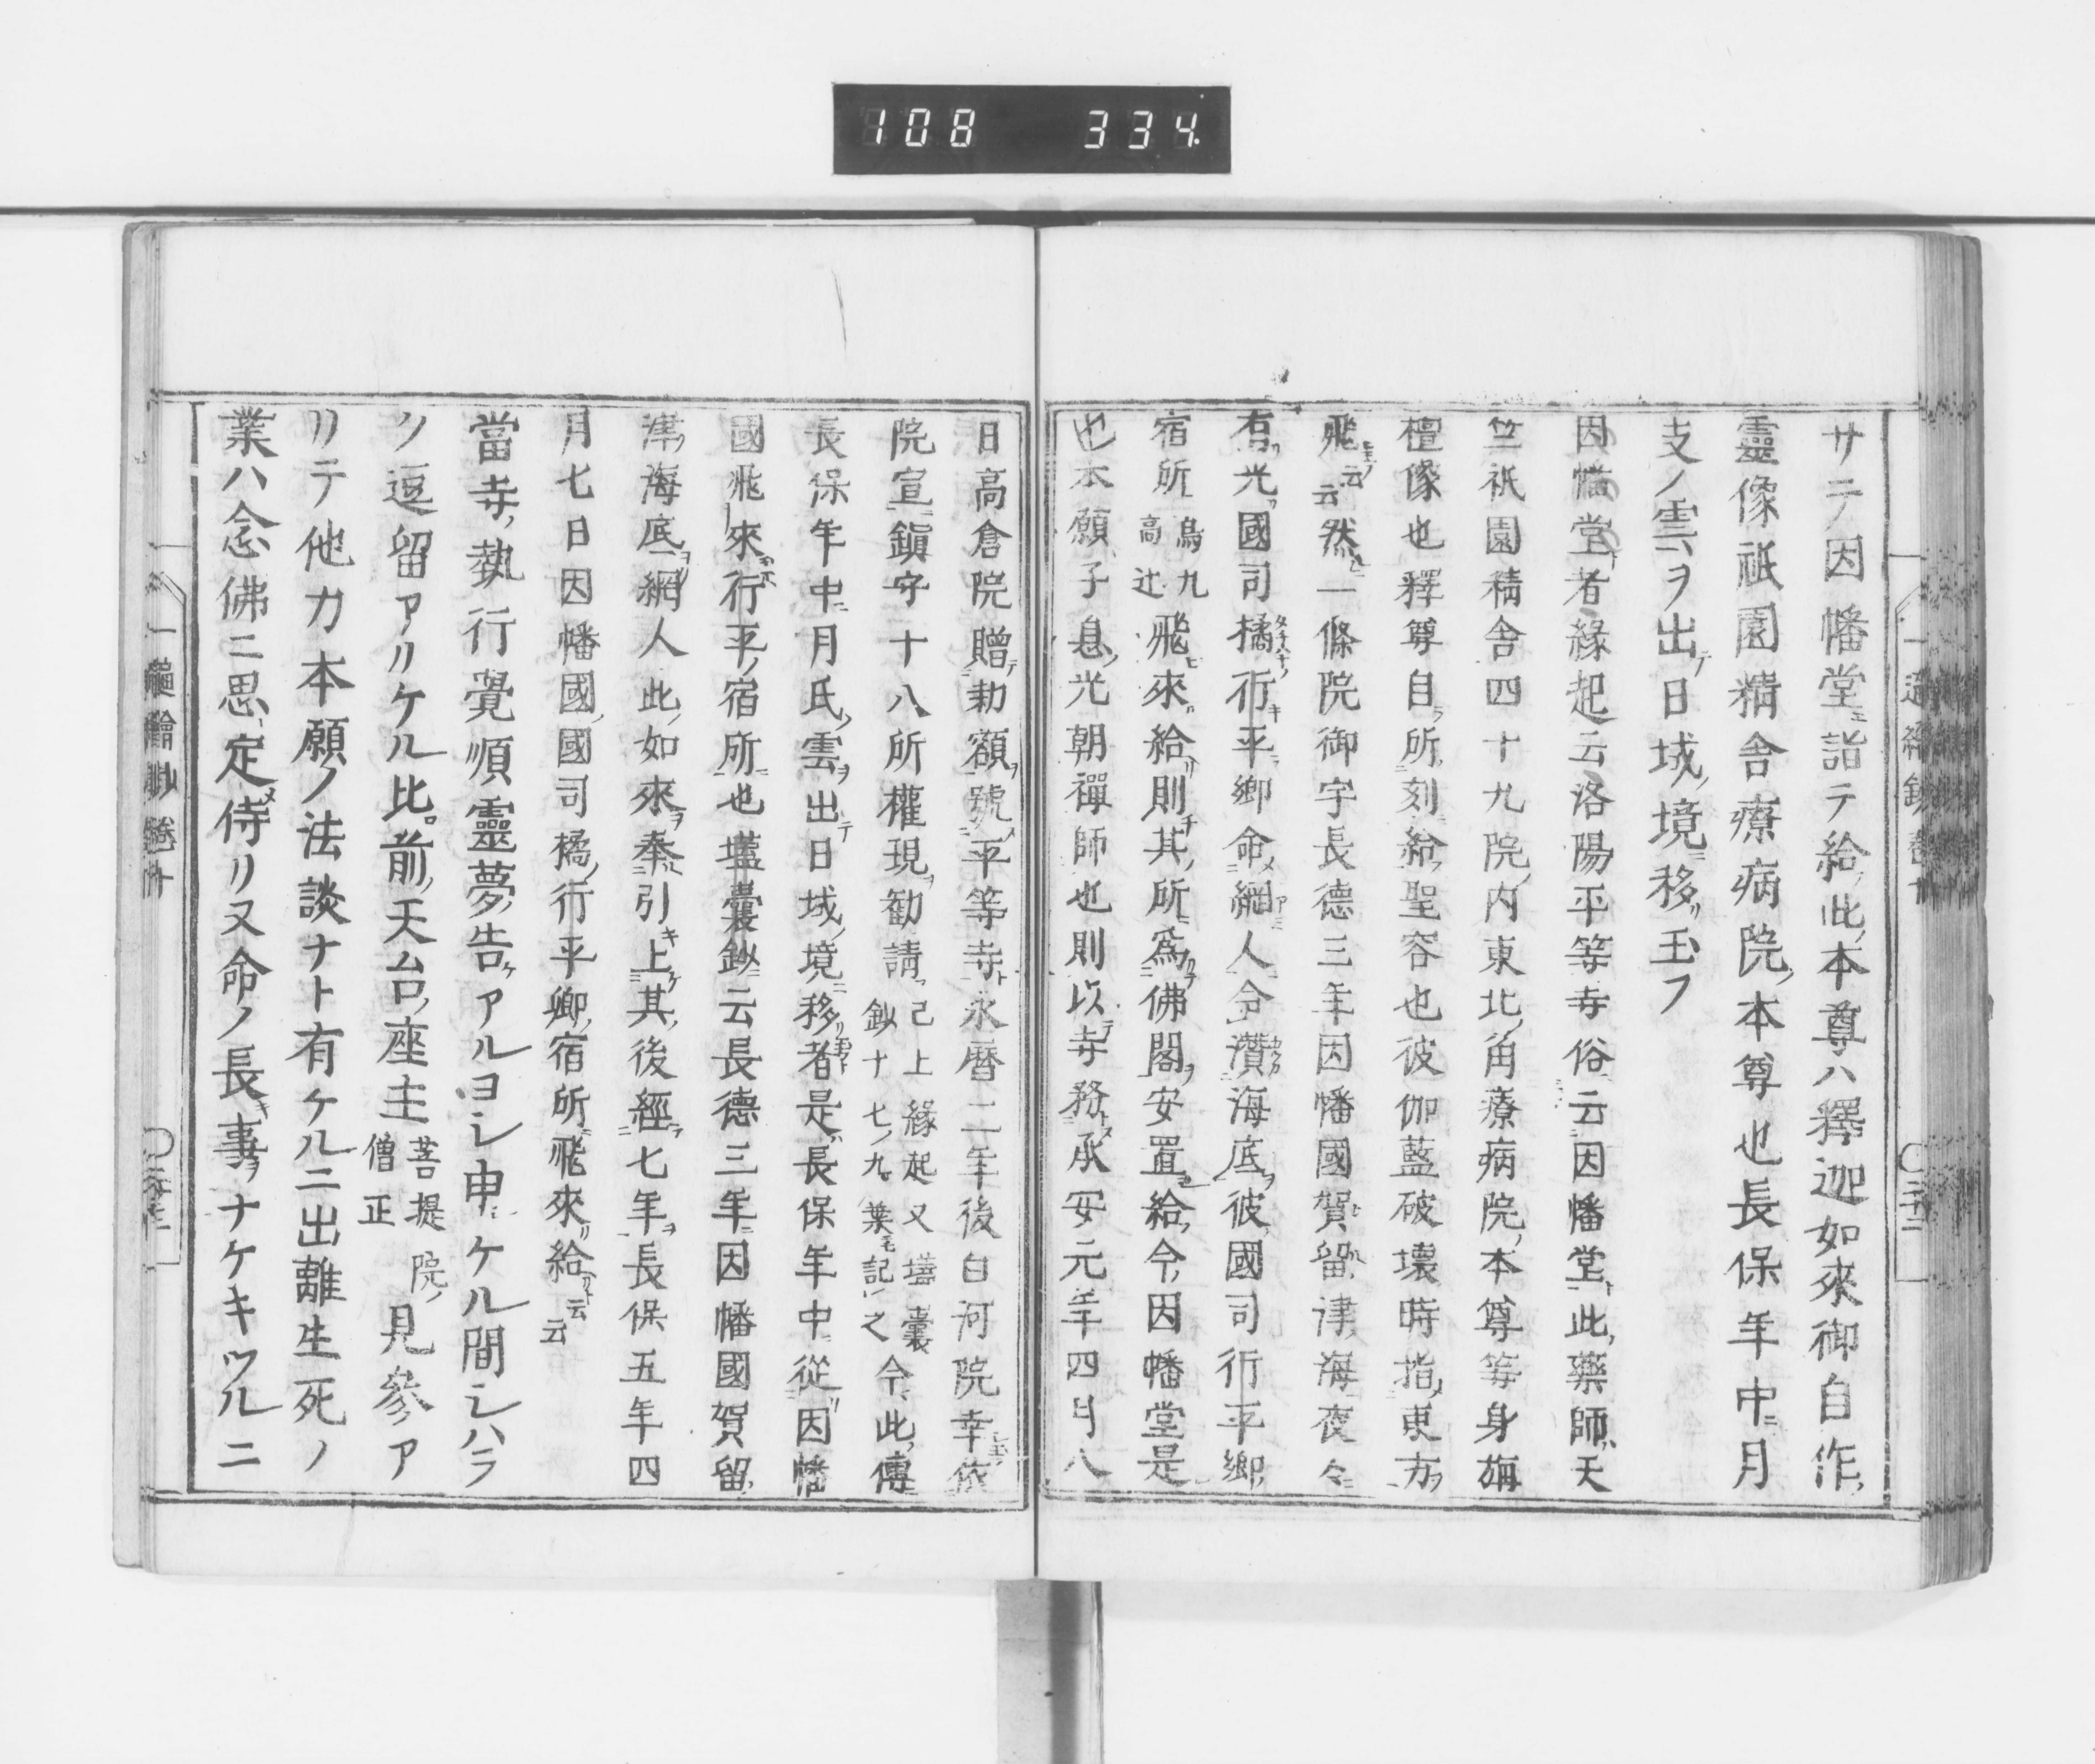 108 334
サテ因幡堂ニ詣テ給此ノ本尊ハ釋迦如來御自作ノ
靈像祇園精舎療病院ノ本尊也長保年中ニ月
支ノ雲ヲ出テ日域ノ境ニ移リ玉フ
因幡堂者縁起云洛陽平等寺俗云因幡堂此藥師ハ天
竺祇園精舎四十九院ノ内東北ノ角療病院ノ本尊等身栴
檀像也釋尊自所刻給聖容也彼伽藍破壞時指東方
飛云云然一條院御宇長德三年因幡國賀留津海夜々
有光國司橘行平卿命綱人令瀆海底彼國司行平卿
宿所烏九高辻飛來給則其所爲佛閣安置給今因幡堂是
也本願子息光朝禪師也則以寺務承安元年四月八
日高倉院贈勅額號平等寺永暦二年後白河院幸依
院宣鎭守十八所權現勸請已上縁起又壒囊鈔十七ノ九葉記之今此傳
長保年中ニ月氏ノ雲ヲ出テ日域ノ境ニ移リ者是長保年中從因幡
國飛來行平宿所也壒囊鈔云長德三年因幡國賀留
津海底網人此如來奉引上其後經七年長保五年四
月七日因幡國國司橘行平卿宿所飛來給云云
當寺ノ執行覺順靈夢ノ告アルヨシ申ケル間シハラ
ク逗留アリケル比前ノ天台座主菩提院ノ僧正見參ア
リテ他力本願ノ法談ナト有ケルニ出離生死ノ
業ハ念佛ニ思定メ侍リ又命ノ長キ事ヲナケキツルニ